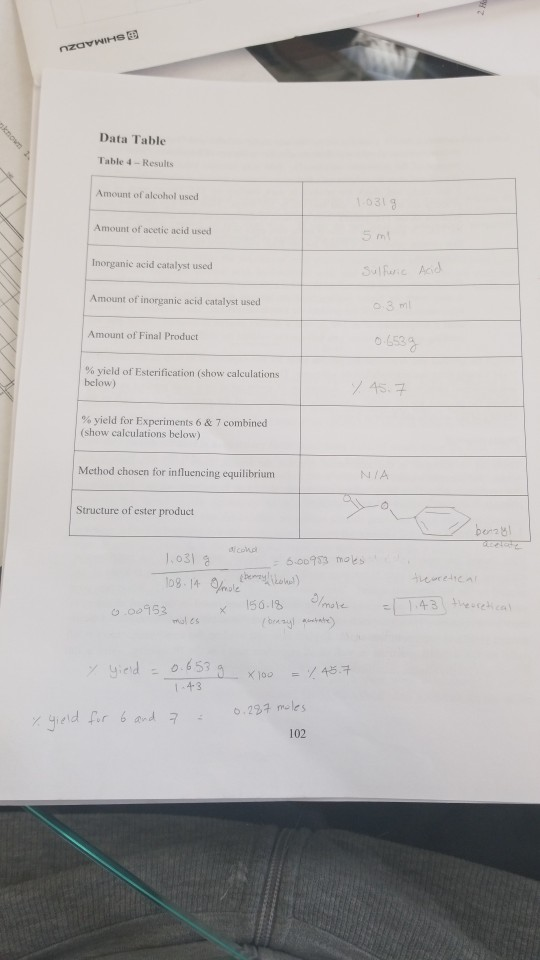 SHIMADZU
Data Table
Table 4 – Results
Amount of alcohol used 1.031 g
Amount of acetic acid used 5 ml
Inorganic acid catalyst used Sulfuric Acid
Amount of inorganic acid catalyst used 0.3 ml
Amount of Final Product 0.653g
% yield of Esterification (show calculations
below) % 45.7
% yield for Experiments 6 & 7 combined
(show calculations below)
Method chosen for influencing equilibrium N/A
Structure of ester product
O
O
benzyl
acetate
1.031 g alcohol = 0.00953 moles
108.14 g/mole (benzyl alcohol)
theoretical
0.00953 moles x 150.18 g/mole = 1.43 theoretical
(benzyl
% yield = 0.653 g x 100 = % 45.7
1.43
% yield for 6 and 7 = 0.287 moles
102